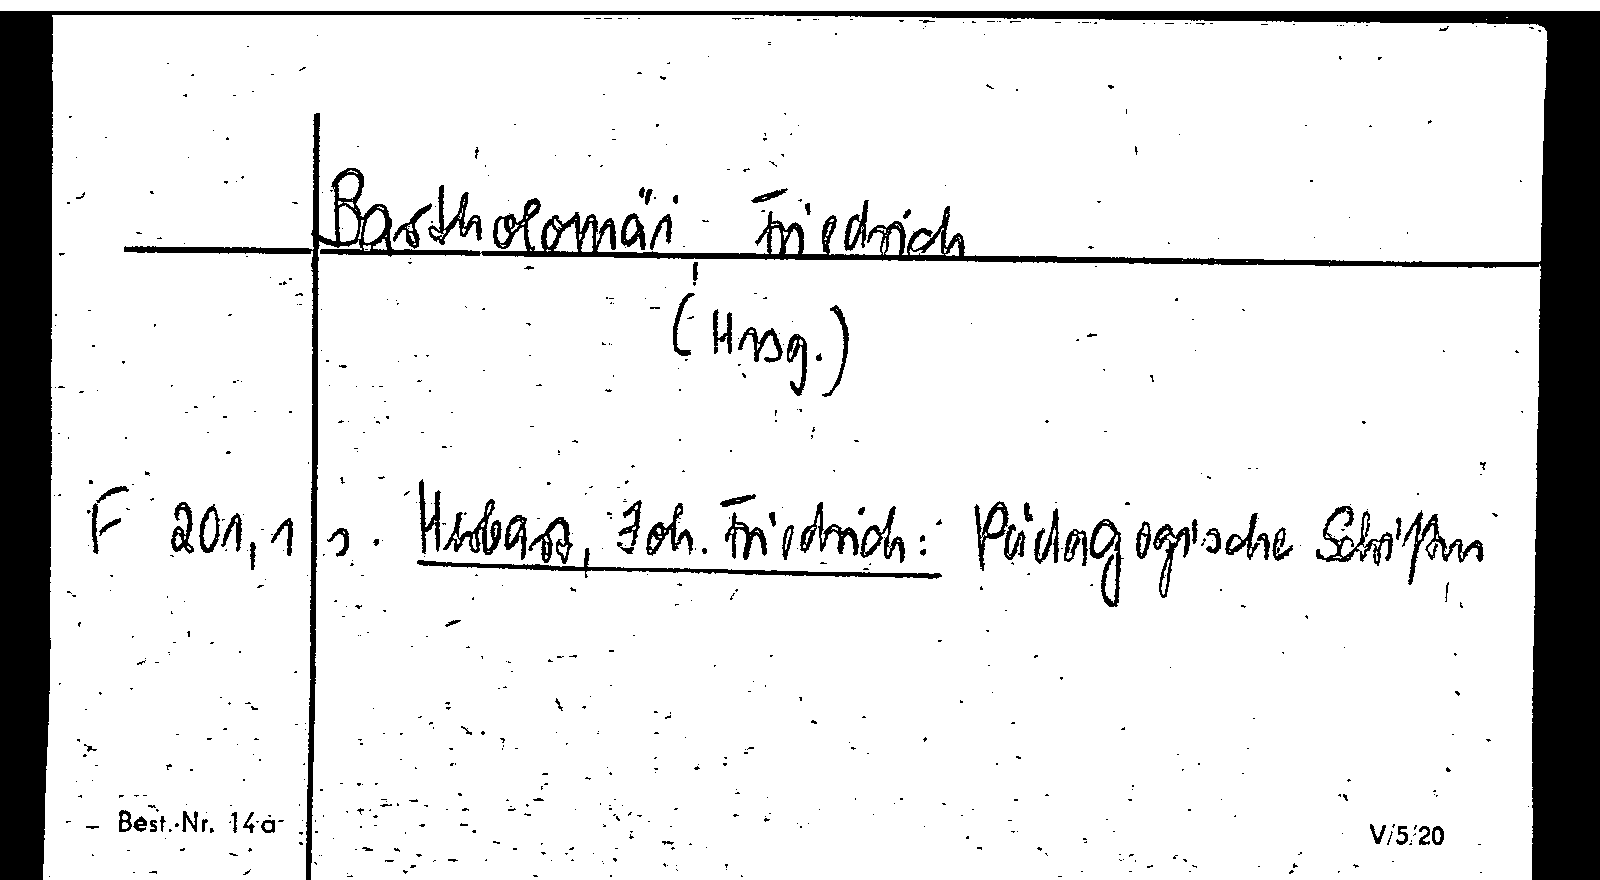 Bartholomäi Friedrich
(Hrsg.)
F 201,1 s. Herbart, Joh. Friedrich: Pädagogische Schriften
Best.-Nr. 14a
V/5/20